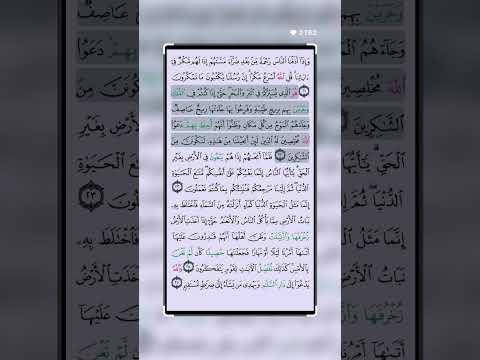 وَإِذَآ أَذَقْنَا ٱلنَّاسَ رَحْمَةً مِّنۢ بَعْدِ ضَرَّآءَ مَسَّتْهُمْ إِذَا لَهُم مَّكْرٌ فِىٓ
ءَايَاتِنَا قُلِ ٱللَّهُ أَسْرَعُ مَكْرًا إِنَّ رُسُلَنَا يَكْتُبُونَ مَا تَمْكُرُونَ
٢١ هُوَ ٱلَّذِى يُسَيِّرُكُمْ فِى ٱلْبَرِّ وَٱلْبَحْرِ حَتَّىٰٓ إِذَا كُنتُمْ فِى ٱلْفُلْكِ
وَجَرَيْنَ بِهِم بِرِيحٍ طَيِّبَةٍ وَفَرِحُوا۟ بِهَا جَآءَتْهَا رِيحٌ عَاصِفٌ
وَجَآءَهُمُ ٱلْمَوْجُ مِن كُلِّ مَكَانٍ وَظَنُّوٓا۟ أَنَّهُمْ أُحِيطَ بِهِمْ دَعَوُا۟
ٱللَّهَ مُخْلِصِينَ لَهُ ٱلدِّينَ لَئِنْ أَنجَيْتَنَا مِنْ هَٰذِهِۦ لَنَكُونَنَّ مِنَ
ٱلشَّٰكِرِينَ ٢٢ فَلَمَّآ أَنجَىٰهُمْ إِذَا هُمْ يَبْغُونَ فِى ٱلْأَرْضِ بِغَيْرِ
ٱلْحَقِّ يَٰٓأَيُّهَا ٱلنَّاسُ إِنَّمَا بَغْيُكُمْ عَلَىٰٓ أَنفُسِكُم مَّتَٰعَ ٱلْحَيَوٰةِ
ٱلدُّنْيَا ثُمَّ إِلَيْنَا مَرْجِعُكُمْ فَنُنَبِّئُكُم بِمَا كُنتُمْ تَعْمَلُونَ ٢٣
إِنَّمَا مَثَلُ ٱلْحَيَوٰةِ ٱلدُّنْيَا كَمَآءٍ أَنزَلْنَٰهُ مِنَ ٱلسَّمَآءِ فَٱخْتَلَطَ بِهِۦ
نَبَاتُ ٱلْأَرْضِ مِمَّا يَأْكُلُ ٱلنَّاسُ وَٱلْأَنْعَٰمُ حَتَّىٰٓ إِذَآ أَخَذَتِ ٱلْأَرْضُ
زُخْرُفَهَا وَٱزَّيَّنَتْ وَظَنَّ أَهْلُهَآ أَنَّهُمْ قَٰدِرُونَ عَلَيْهَآ
أَتَىٰهَآ أَمْرُنَا لَيْلًا أَوْ نَهَارًا فَجَعَلْنَٰهَا حَصِيدًا كَأَن لَّمْ تَغْنَ
بِٱلْأَمْسِ كَذَٰلِكَ نُفَصِّلُ ٱلْءَايَٰتِ لِقَوْمٍ يَتَفَكَّرُونَ ٢٤ وَٱللَّهُ
يَدْعُوٓا۟ إِلَىٰ دَارِ ٱلسَّلَٰمِ وَيَهْدِى مَن يَشَآءُ إِلَىٰ صِرَٰطٍ مُّسْتَقِيمٍ ٢٥